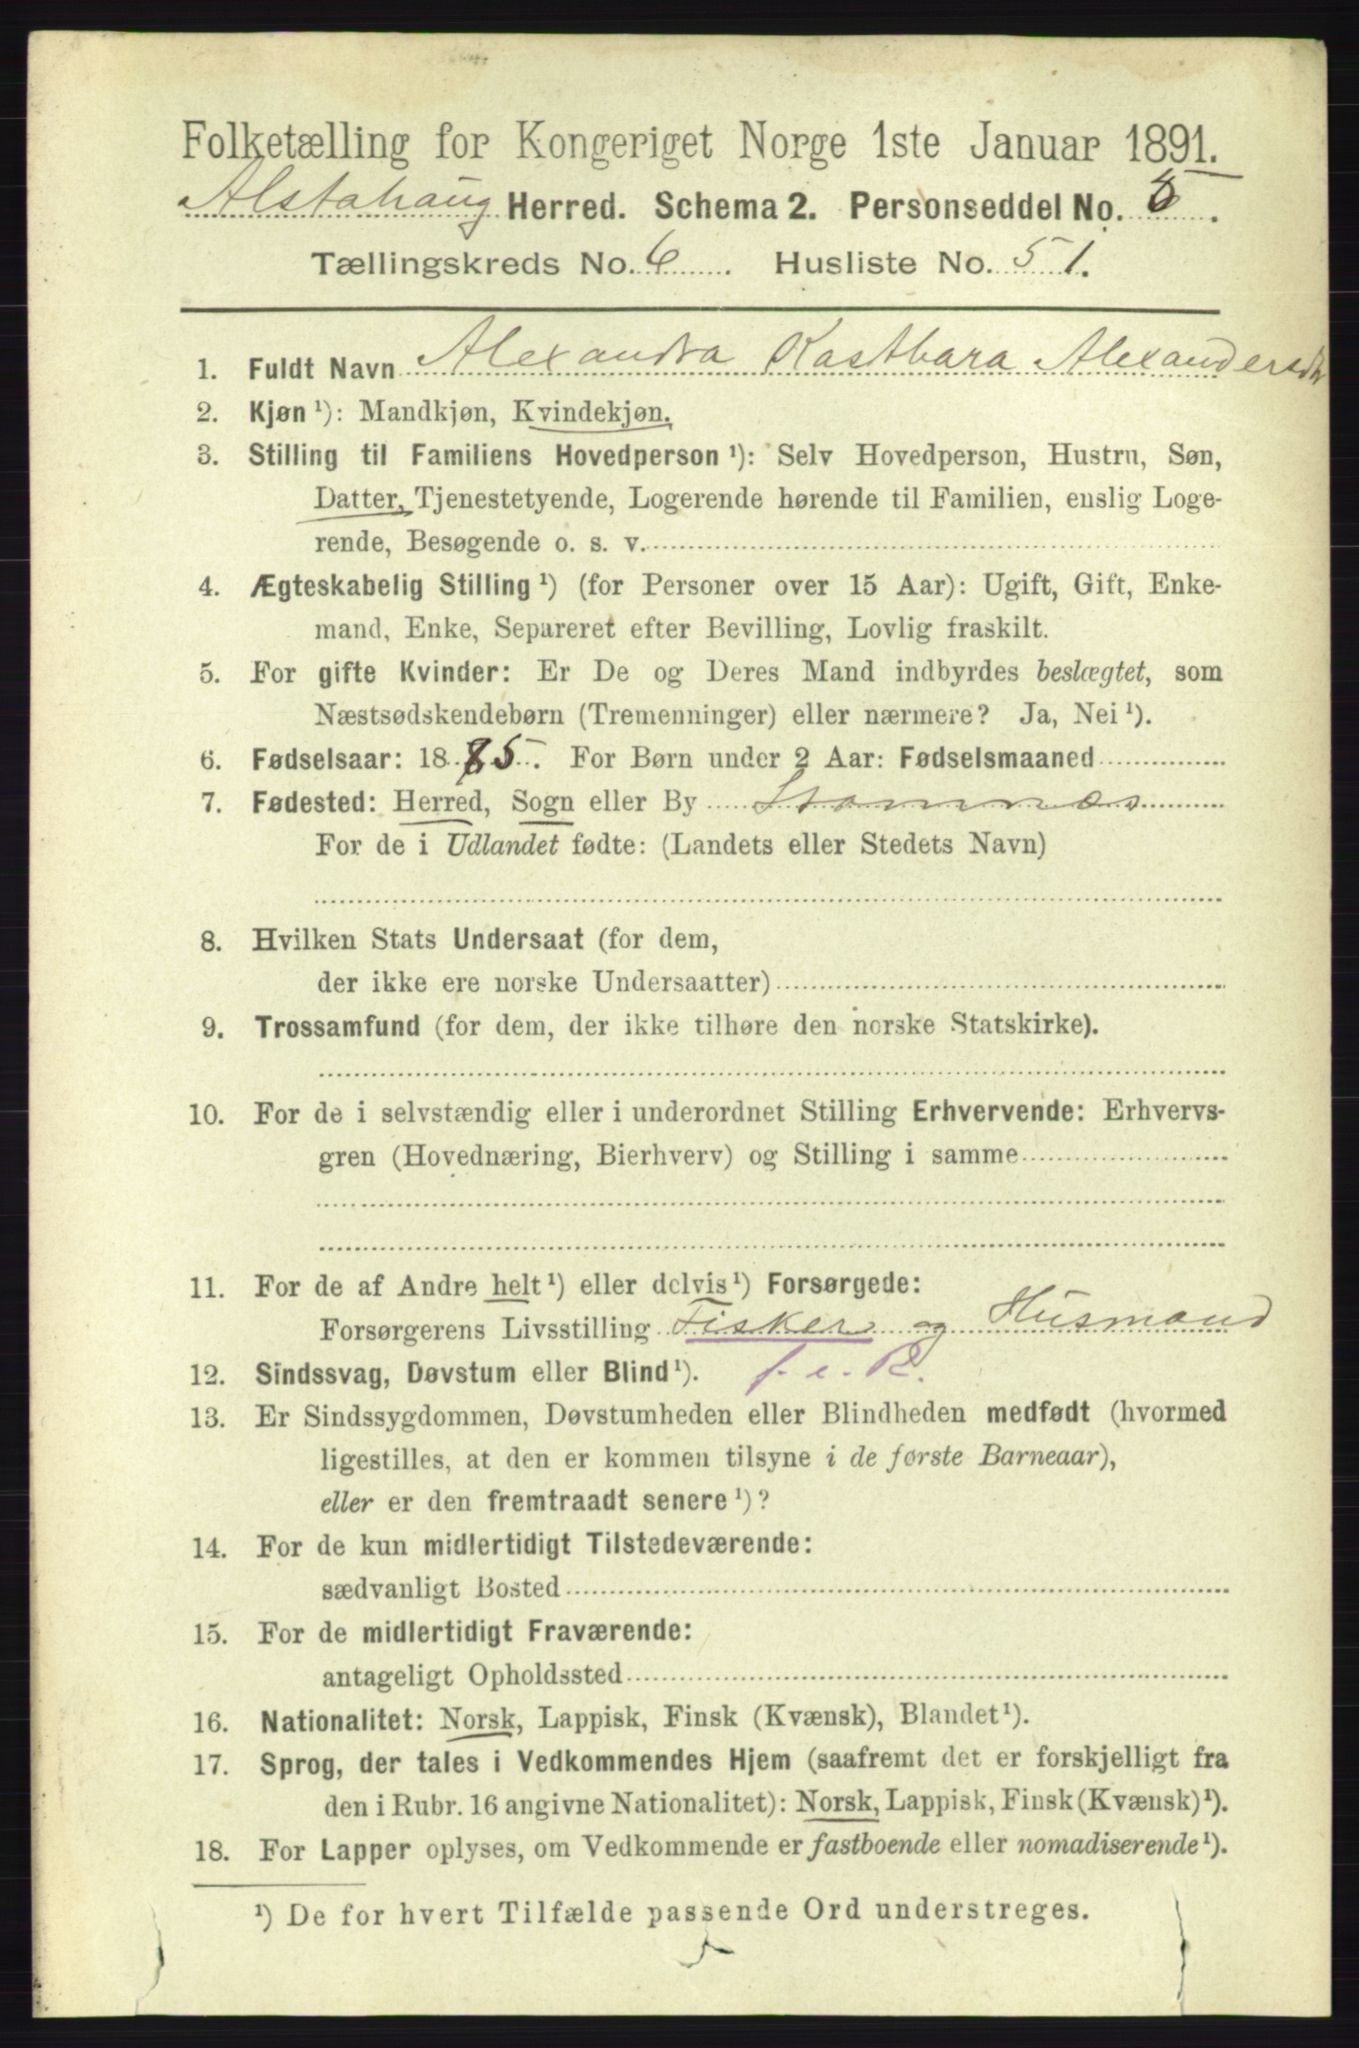 Folketælling for Kongeriget Norge 1ste Januar 1891.
Alstahaug Herred. Schema 2. Personseddel No. 5.
Tællingskreds No. 6. Husliste No. 51.
1. Fuldt Navn Alexandra Kastbara Alexandersdtr
2. Kjøn ¹): Mandkjøn, Kvindekjøn.
3. Stilling til Familiens Hovedperson ¹): Selv Hovedperson, Hustru, Søn,
Datter, Tjenestetyende, Logerende hørende til Familien, enslig Loge-
rende, Besøgende o. s. v.
4. Ægteskabelig Stilling ¹) (for Personer over 15 Aar): Ugift, Gift, Enke-
mand, Enke, Separeret efter Bevilling, Lovlig fraskilt.
5. For gifte Kvinder: Er De og Deres Mand indbyrdes beslægtet, som
Næstsødskendebørn (Tremenninger) eller nærmere? Ja, Nei ¹).
6. Fødselsaar: 1885. For Børn under 2 Aar: Fødselsmaaned
7. Fødested: Herred, Sogn eller By Stamnæs
For de i Udlandet fødte: (Landets eller Stedets Navn)
8. Hvilken Stats Undersaat (for dem,
der ikke ere norske Undersaatter)
9. Trossamfund (for dem, der ikke tilhøre den norske Statskirke).
10. For de i selvstændig eller i underordnet Stilling Erhvervende: Erhvervs-
gren (Hovednæring, Bierhverv) og Stilling i samme
11. For de af Andre helt ¹) eller delvis ¹) Forsørgede:
Forsørgerens Livsstilling Fisker og Husmand
12. Sindssvag, Døvstum eller Blind ¹). f. e. R.
13. Er Sindssygdommen, Døvstumheden eller Blindheden medfødt (hvormed
ligestilles, at den er kommen tilsyne i de første Barneaar),
eller er den fremtraadt senere ¹)?
14. For de kun midlertidigt Tilstedeværende:
sædvanligt Bosted
15. For de midlertidigt Fraværende:
antageligt Opholdssted
16. Nationalitet: Norsk, Lappisk, Finsk (Kvænsk), Blandet ¹).
17. Sprog, der tales i Vedkommendes Hjem (saafremt det er forskjelligt fra
den i Rubr. 16 angivne Nationalitet): Norsk, Lappisk, Finsk (Kvænsk) ¹).
18. For Lapper oplyses, om Vedkommende er fastboende eller nomadiserende ¹).
¹) De for hvert Tilfælde passende Ord understreges.